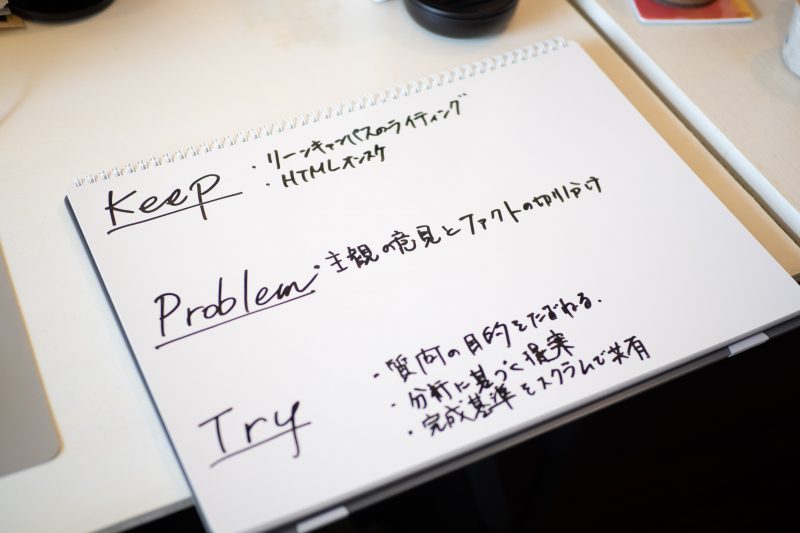 Keep
・リーンキャンバスのライティング
・HTMLオンスケ
Problem
・主観の意見とファクトの切り分け
Try
・質問の目的をたずねる.
・分析に基づく提案
・完成基準をスクラムで共有